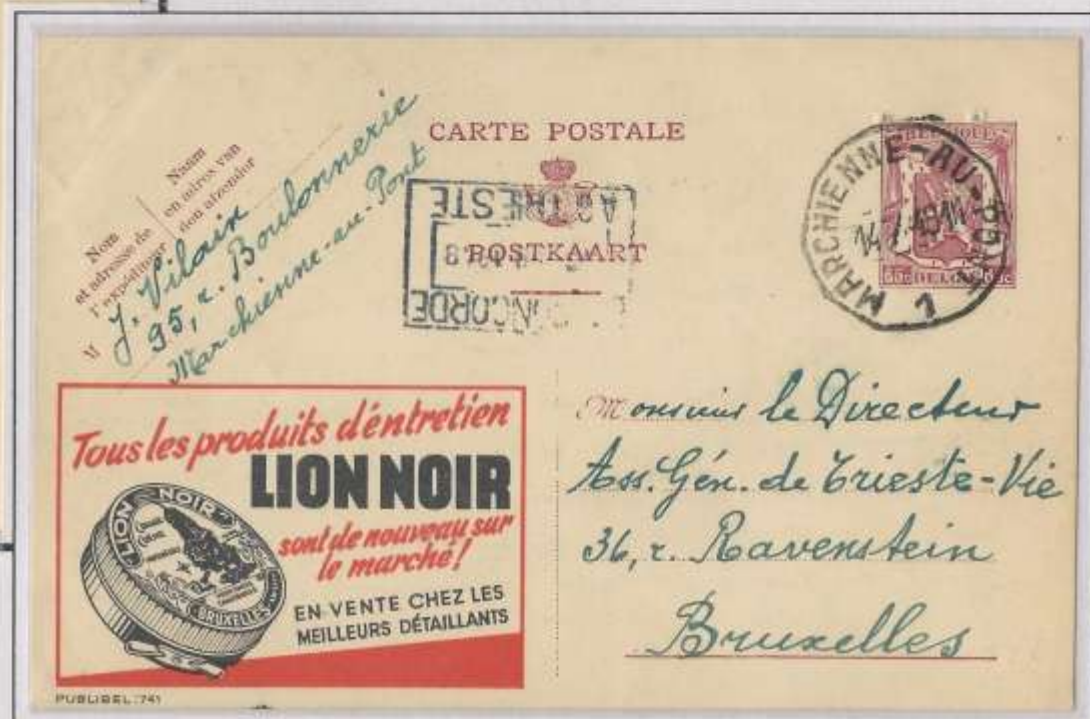 CARTE POSTALE
POSTKAART
Nom
et adresse de
l'expéditeur
Naam
en adres van
den afzender
J. Vilain
95, r. Boulonnerie
Marchienne-au-Pont
AS TRIESTE
CONCORDE
MARCHIENNE-AU-PONT
1
BELGIQUE
65c BELGIE 65c
Tous les produits d'éntretien
LION NOIR
sont de nouveau sur
le marché!
EN VENTE CHEZ LES
MEILLEURS DÉTAILLANTS
LION NOIR
BRUXELLES
PUBLIBEL 741
Monsieur le Directeur
Ass. Gén. de Trieste-Vie
36, r. Ravenstein
Bruxelles